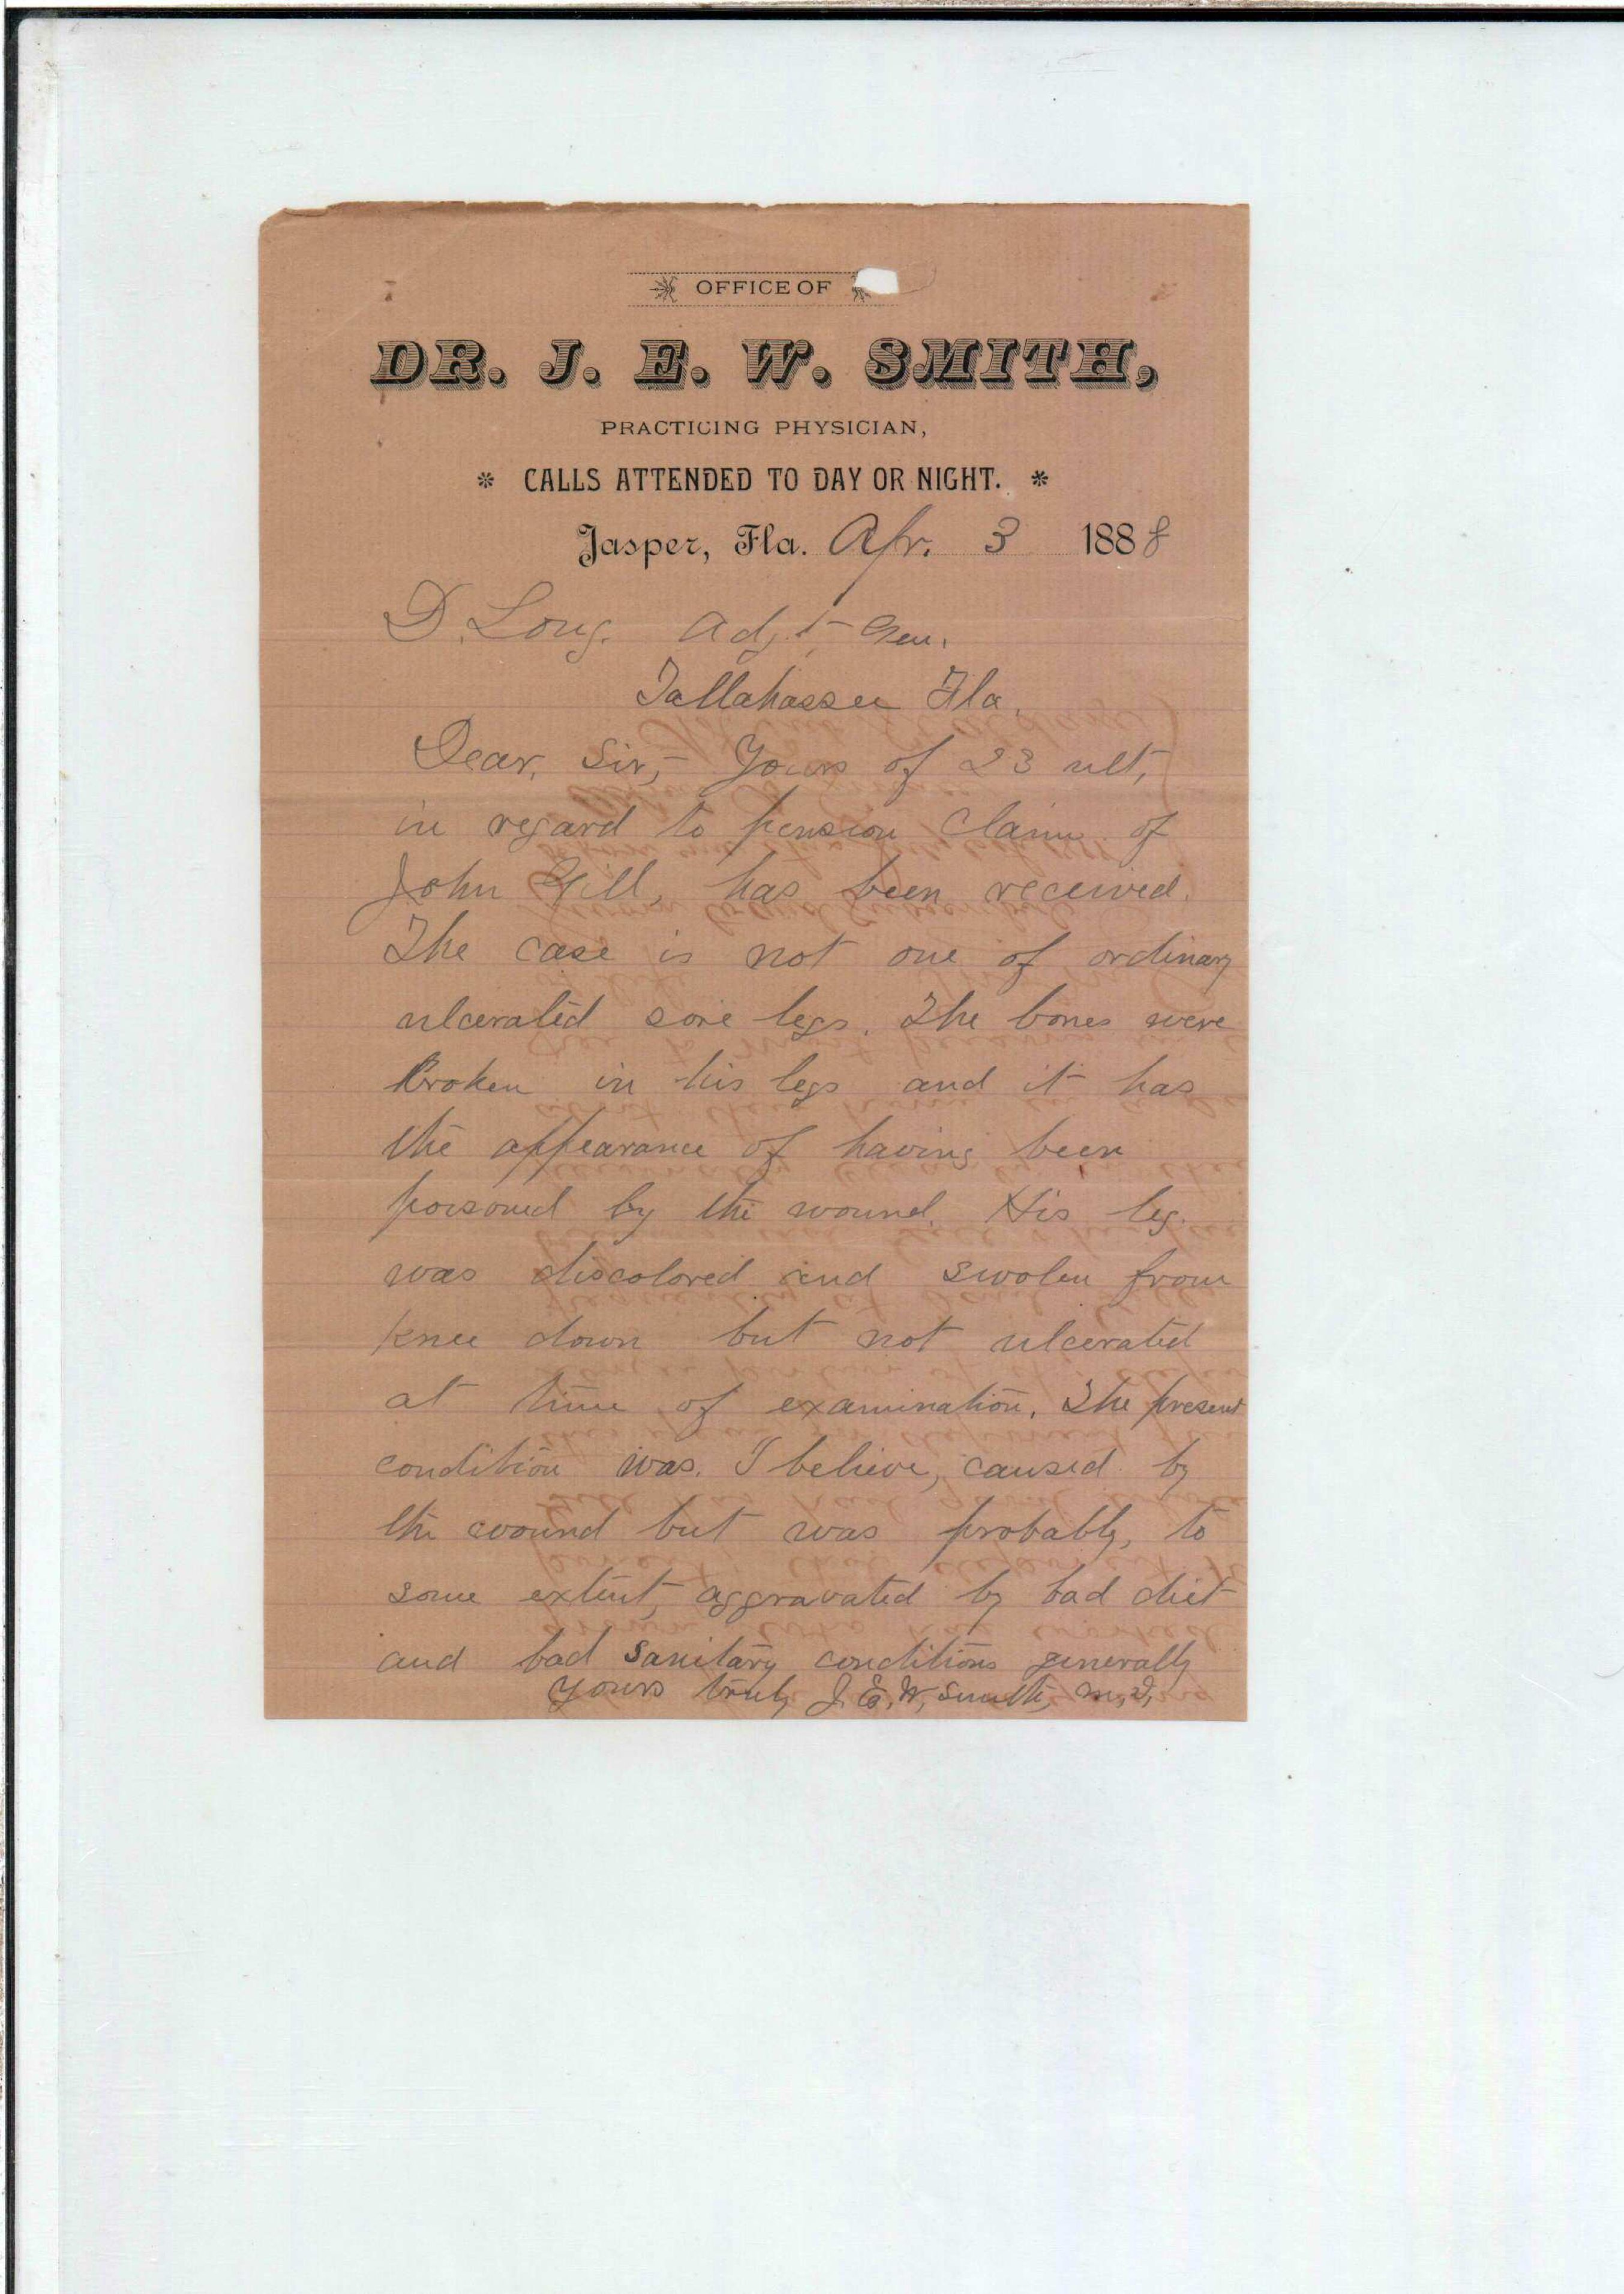 OFFICE OF
DR. J. E. W. SMITH,
PRACTICING PHYSICIAN,
* CALLS ATTENDED TO DAY OR NIGHT. *
Jasper, Fla. Apr. 3 1888
D. Long. Adj.t Gen.
Tallahassee Fla.
Dear, Sir,- Yours of 23 ult,
in regard to pension claim of
John Gill, has been received.
The case is not one of ordinary
ulcerated sore legs. The bones were
Broken in his legs and it has
the appearance of having been
poisoned by the wound. His leg.
was discolored and swolen from
knee down but not ulcerated
at time of examination. The present
condition was. I believe, caused by
the wound but was probably, to
some extent, aggravated by bad diet
and bad sanitary conditions generally
Yours truly J. E. W. Smith, M.D.